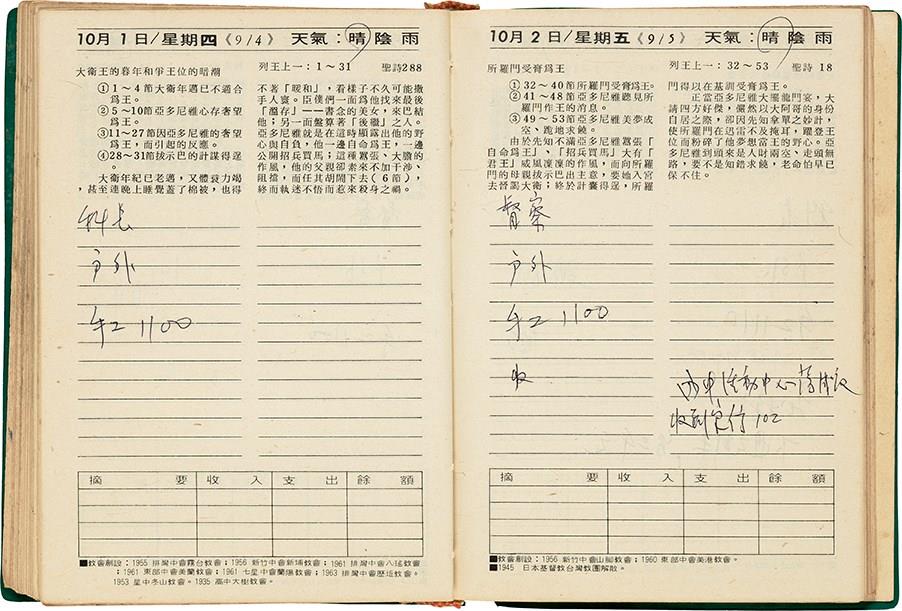 10月1日/星期四《9/4》 天氣：晴 陰 雨
大衛王的暮年和爭王位的暗潮
①1～4節大衛年邁已不適合
爲王。
②5～10節亞多尼雅心存奢望
爲王。
③11～27節因亞多尼雅的奢望
爲王，而引起的反應。
④28～31節拔示巴的計謀得逞
。
大衛年紀已老邁，又體衰力竭
，甚至連晚上睡覺蓋了棉被，也得
列王上一：1～31 聖詩288
不著「暖和」，看樣子不久可能撒
手人寰。臣僕們一面爲他找來最後
「溫存」——書念的美女，來巴結
他；另一面盤算著「後繼」之人。
亞多尼雅就是在這時顯露出他的野
心與自負，他一邊自命爲王，一邊
公開招兵買馬；這種囂張、大膽的
作風，他的父親卻素來不加干涉、
阻擋，而任其胡鬧下去（6節），
終而執迷不悟而惹來殺身之禍。
科長
戶外
牟工 1100
摘 要 收 入 支 出 餘 額
■教會創設：1955 排灣中會霧台教會；1956 新竹中會新埔教會；1961 排灣中會八瑤教會
；1961 東部中會美蘭教會；1961 七星中會蘭陽教會；1963 排灣中會歷坵教會。
1953 星中冬山教會。1935 高中大樹教會。
10月2日/星期五《9/5》 天氣：晴 陰 雨
所羅門受膏爲王
①32～40節所羅門受膏爲王。
②41～48節亞多尼雅聽見所
羅門作王的消息。
③49～53節亞多尼雅美夢成
空、跪地求饒。
由於先知不滿亞多尼雅囂張「
自命爲王」、「招兵買馬」大有「
君王」威風凜凜的作風，而向所羅
門的母親拔示巴出主意，要她入宮
去晉謁大衛；終於計囊得逞，所羅
列王上一：32～53 聖詩 18
門得以在基訓受膏爲王。
正當亞多尼雅大擺龍門宴，大
請四方好傑，儼然以大哥的身份
自居之際，卻因先知拿單之妙計，
使所羅門在迅雷不及掩耳，躍登王
位而粉碎了他夢想當王的野心。亞
多尼雅到頭來是人財兩空、走頭無
路，要不是知錯求饒，老命怕早已
保不住。
督察
戶外
牟工 1100
收
活動中心
收到
102
摘 要 收 入 支 出 餘 額
■教會創設：1956 新竹中會山腳教會；1960 東部中會美港教會。
■1945 日本基督教台灣教團解散。